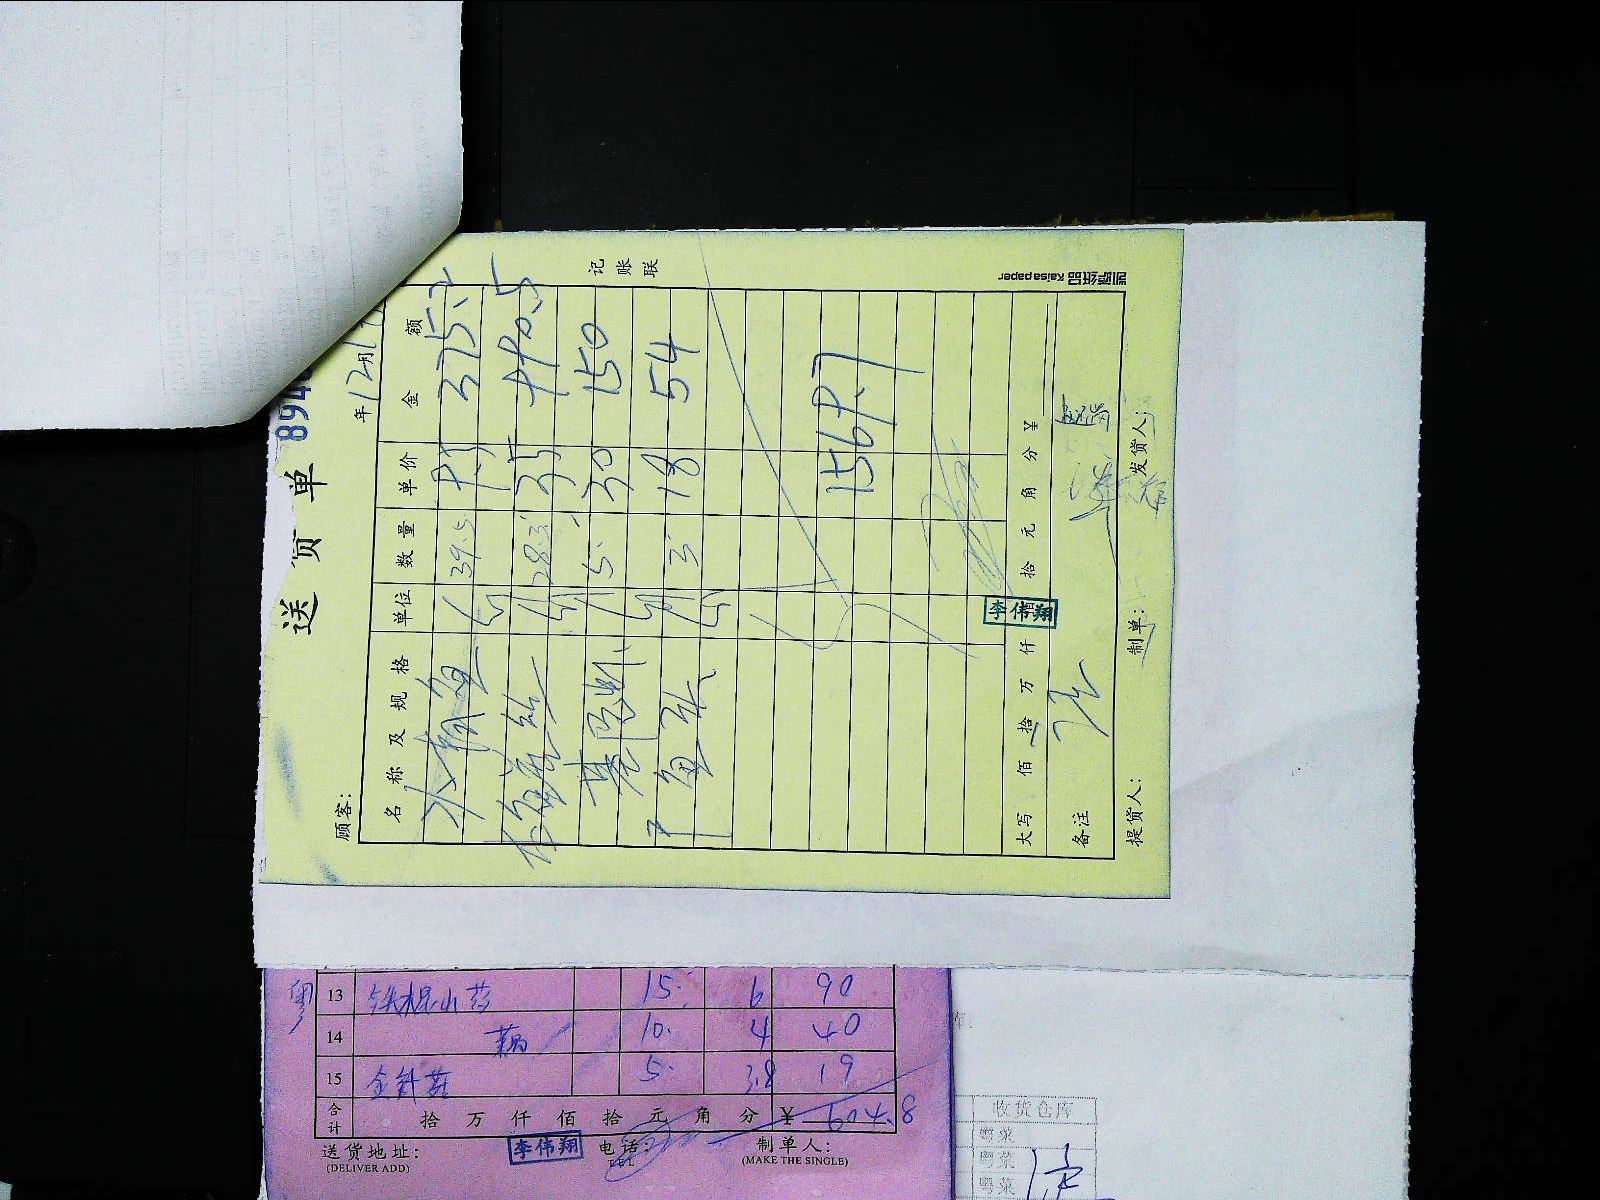 送货单
894
顾客:
年12月1
名称及规格 单位 数量 单价 金额
水 鱼 斤 39.5 9.5 375.2
斤 28.3 35 990.5
基围虾 斤 5 30 150
鱼头 斤 3 18 54
1569.7
大写 佰 拾 万 仟 拾 元 角 分 ¥
李伟翔
备注
提货人: 制单: 发货人:
记账联
Kaisapaper
粤
13 铁棍山药 15 6 90
14 藕 10 4 40
15 金针菇 5 3.8 19
合计 拾 万 仟 佰 拾 元 角 分 ¥
送货地址: 李伟翔 电话: 制单人:
(DELIVER ADD) TEL (MAKE THE SINGLE)
库:
收货仓库
粤菜
粤菜
粤菜